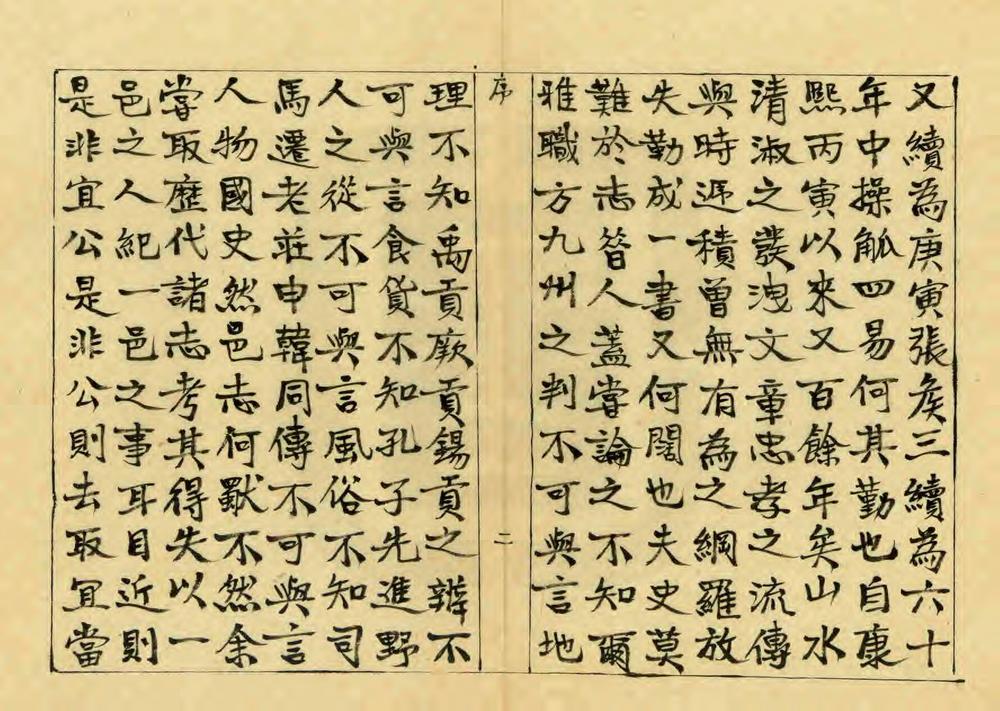 又續為庚寅張矦三續為六十
年中操觚四易何其勤也自康
熙丙寅以來又百餘年矣山水
清淑之發洩文章忠孝之流傳
與時遞積曾無有為之綱羅放
失勒成一書又何闊也夫史莫
難於志晉人蓋嘗論之不知爾
雅職方九州之判不可與言地
序
二
理不知禹貢厥貢錫貢之辨不
可與言食貨不知孔子先進野
人之從不可與言風俗不知司
馬遷老莊申韓同傳不可與言
人物國史然邑志何獸不然余
嘗取歷代諸志考其得失以一
邑之人紀一邑之事耳目近則
是非宜公是非公則去取宜當